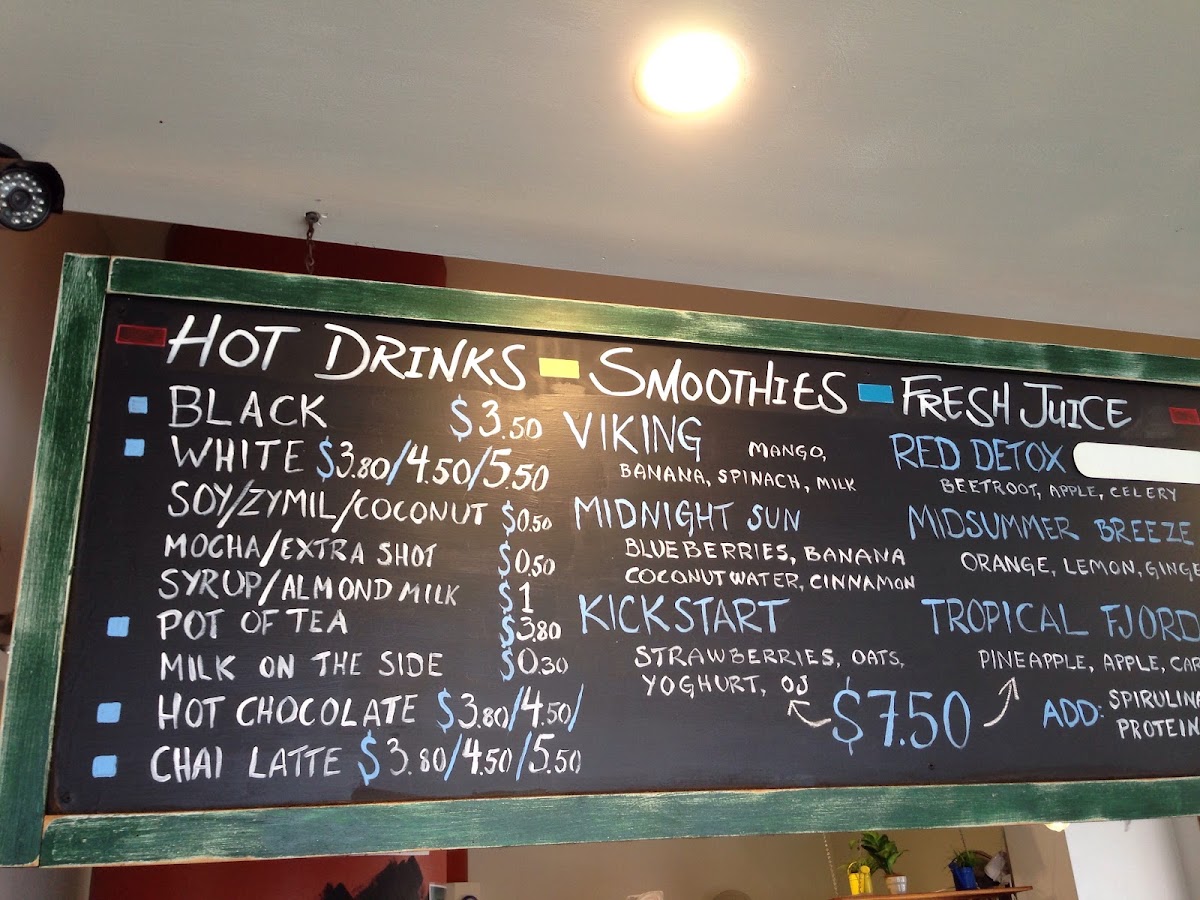 HOT DRINKS
BLACK $3.50
WHITE $3.80/4.50/5.50
SOY/ZYMIL/COCONUT $0.50
MOCHA/EXTRA SHOT $0.50
SYRUP/ALMOND MILK $1
POT OF TEA $3.80
MILK ON THE SIDE $0.30
HOT CHOCOLATE $3.80/4.50/
CHAI LATTE $3.80/4.50/5.50
SMOOTHIES
VIKING MANGO,
BANANA, SPINACH, MILK
MIDNIGHT SUN
BLUEBERRIES, BANANA
COCONUT WATER, CINNAMON
KICKSTART
STRAWBERRIES, OATS,
YOGHURT, OJ
$7.50
FRESH JUICE
RED DETOX
BEETROOT, APPLE, CELERY
MIDSUMMER BREEZE
ORANGE, LEMON,
TROPICAL FJORD
PINEAPPLE, APPLE,
ADD: SPIRULINA
PROTEIN